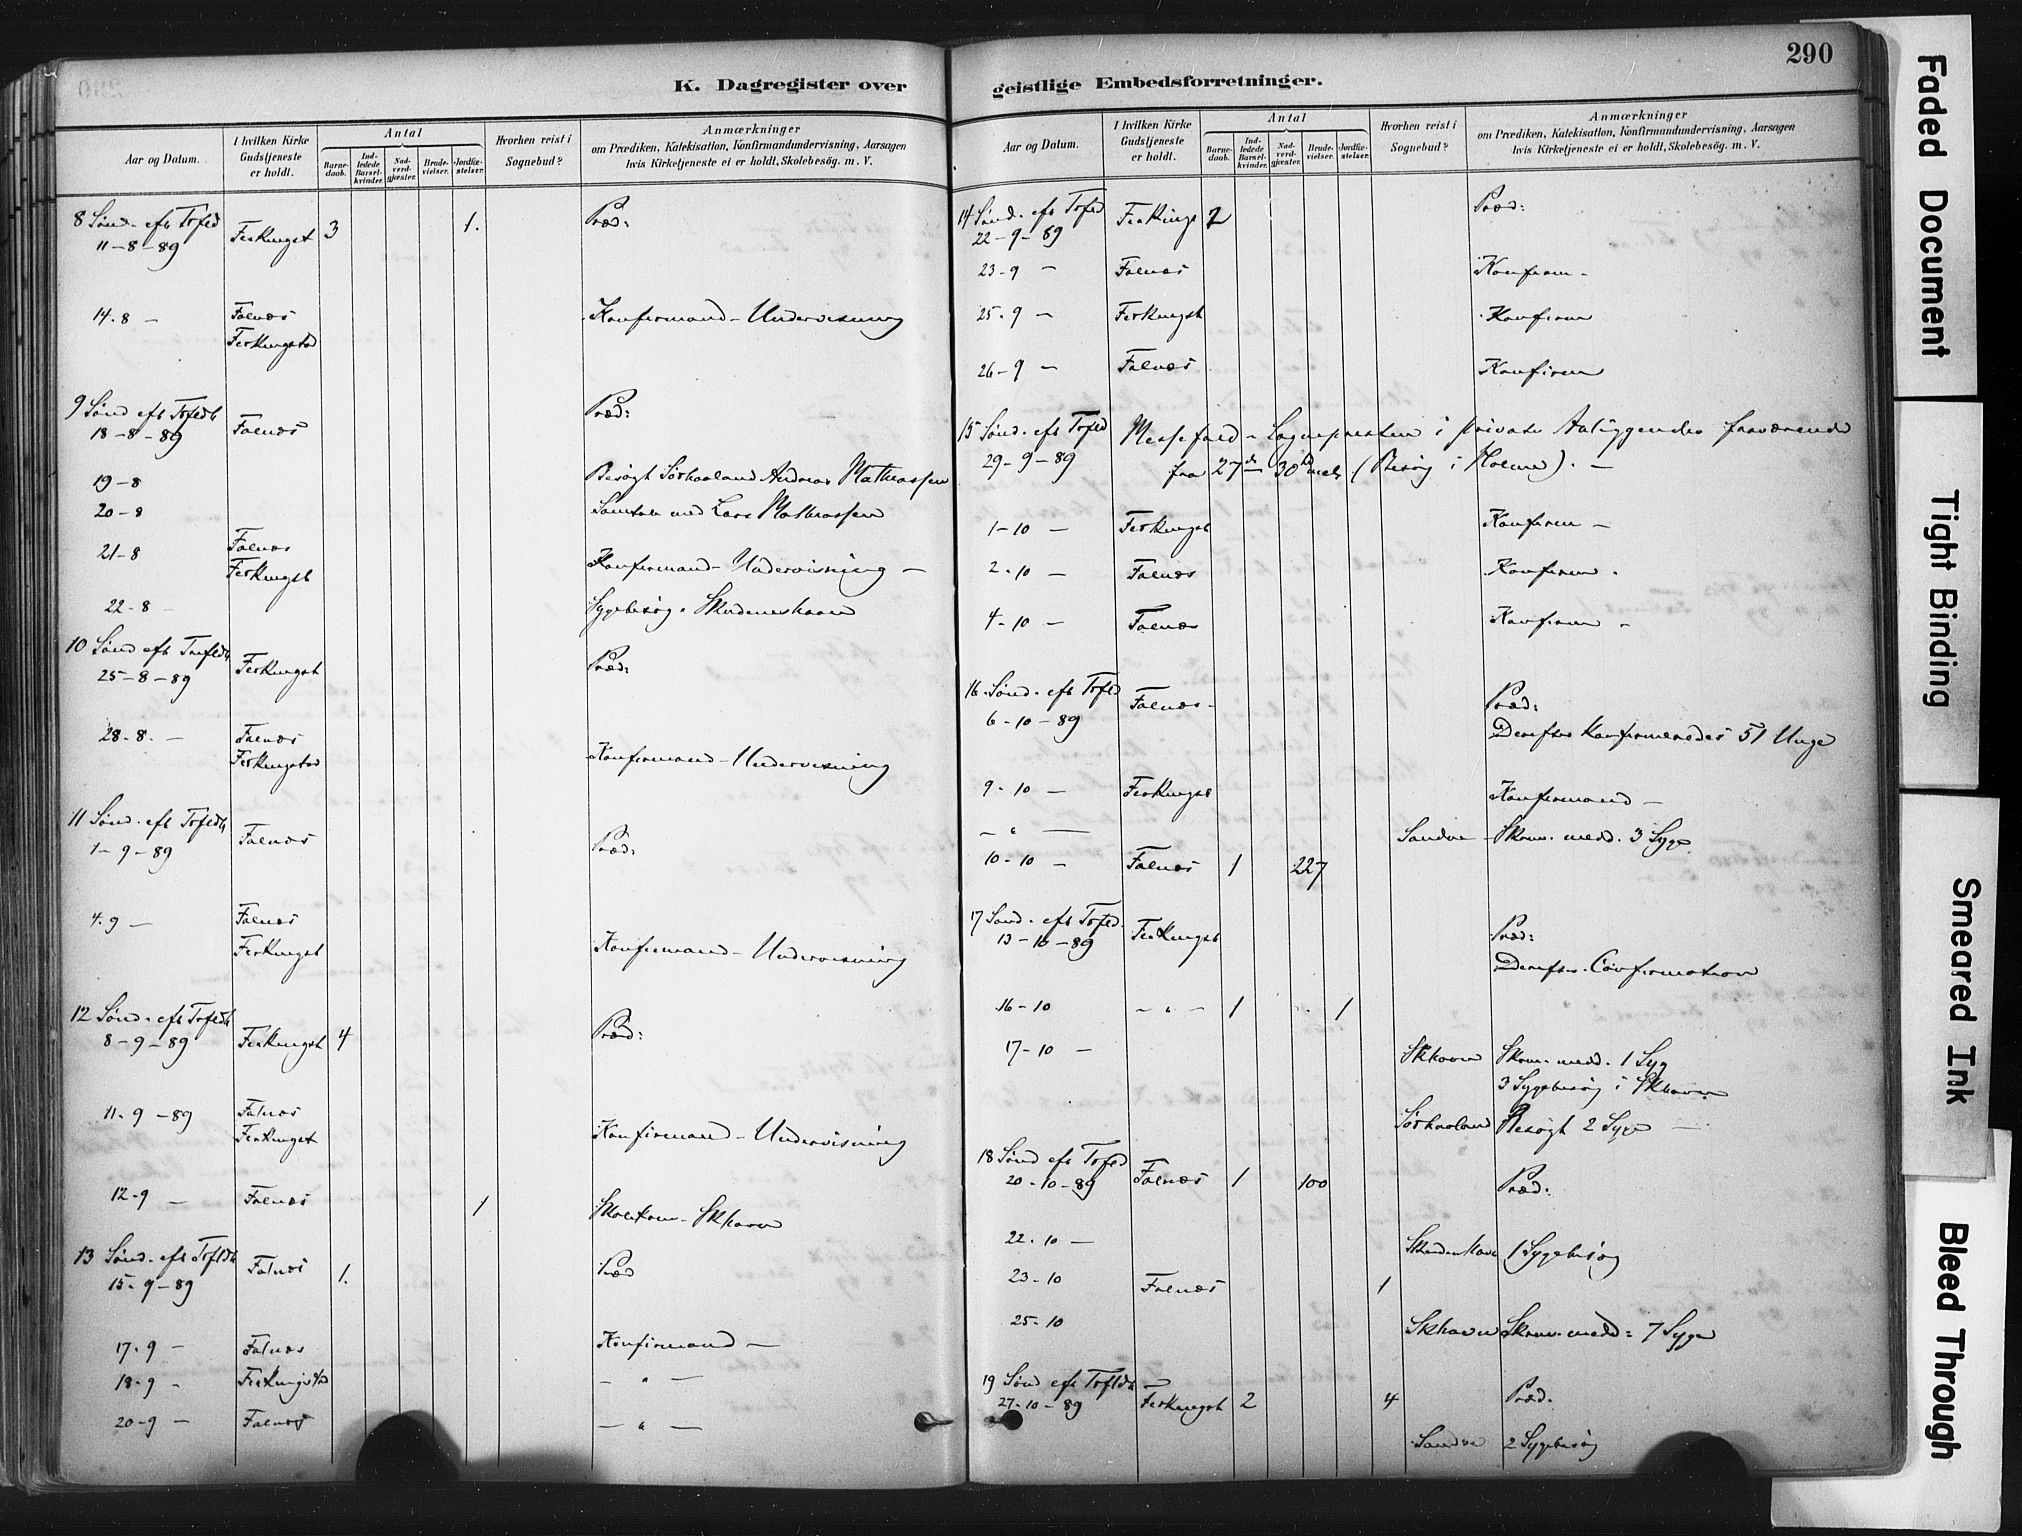 290
K. Dagregister over
geistlige Embedsforretninger.
Aar og Datum.
I hvilken Kirke Gudstjeneste er holdt.
Antal
Barnedaab.
Indledede Barselkvinder.
Nadverdgjæster.
Brudevielser.
Jordfæstelser.
Hvorhen reist i Sognebud?
Anmærkninger
om Prædiken, Katekisation, Konfirmandundervisning, Aarsagen
hvis Kirketjeneste ei er holdt, Skolebesøg. m. V.
8 Sønd. eft Trefld
11-8-89 Ferkingst 3 1. Præd:
14.8 - Falnæs
Ferkingstad Konfirmand-Undervisning
9 Sønd eft Trefldh
18-8-89 Falnæs Præd:
19-8 Besøgt Sørhaaland Andreas Mathiassen
20-8 Samtale med Lars Mathiassen
21-8 Falnæs
Ferkingst Konfirmand-Undervisning -
22-8 - Sygebesøg i Skudeneshavn
10 Sønd eft Trefldh
25-8-89 Ferkingst Præd:
28-8. - Falnæs
Ferkingstad Konfirmand-Undervisning
11 Sønd. eft Trefldh
1-9-89 Falnæs Præd:
4.9 - Falnæs
Ferkingst Konfirmand-Undervisning
12 Sønd. eft Trefldh
8-9-89 Ferkingst 4 Præd:
11-9-89 Falnæs
Ferkingst Konfirmand-Undervisning
12-9 - Falnæs 1 Skolekom. Skhavn
13 Sønd. eft Trefldh
15-9-89 Falnæs 1. Præd
17-9 - Falnæs Konfirmand -
18-9 - Ferkingstad - " -
20-9 - Falnæs - " -
Aar og Datum.
I hvilken Kirke Gudstjeneste er holdt.
Antal
Barnedaab.
Indledede Barselkvinder.
Nadverdgjæster.
Brudevielser.
Jordfæstelser.
Hvorhen reist i Sognebud?
Anmærkninger
om Prædiken, Katekisation, Konfirmandundervisning, Aarsagen
hvis Kirketjeneste ei er holdt, Skolebesøg. m. V.
14 Sønd. eft Trefld
22-9-89 Ferkings 2 Præd:
23-9 - Falnæs Konfirm -
25-9 - Ferkingst Konfirm
26-9 - Falnæs Konfirm
15 Sønd. eft Trefld Messefald - Sognepresten i private Anliggender fraværende
29-9-89 fra 27de 30te incl. (Besøg i Holme). -
1-10 - Ferkingst Konfirm -
2-10 - Falnæs Konfirm.
4-10 - Falnæs Konfirm -
16. Sønd. eft Trefld
6-10-89 Falnæs - Præd:
Derefter Konfirmeredes 51 Unge
9-10 - Ferkingst Konfirmand -
- " - Sandve - Skom. medd. 3 Syge
10-10 - Falnæs 1 227
17 Sønd. eft Trefld.
13-10-89 Ferkingst Præd:
Derefter Confirmation
16-10 - " - 1 1
17-10 - Skhavn Skom. medd. 1 Syg
3 Sygebesøg i Skhavn
Sørhaaland Besøgt 2 Syge -
18 Sønd eft Trefld
20-10-89 Falnæs 1 100 Præd:
22-10 - Skudeshavn 1 Sygebesøg
23-10 Falnæs 1
25-10 Skhavn Skom. medd: 7 Syge
19 Sønd eft Trefldh
27-10-89 Ferkingst 2 4 Præd.
Sandve 2 Sygebesøg
Faded Document
Tight Binding
Smeared Ink
Bleed Through